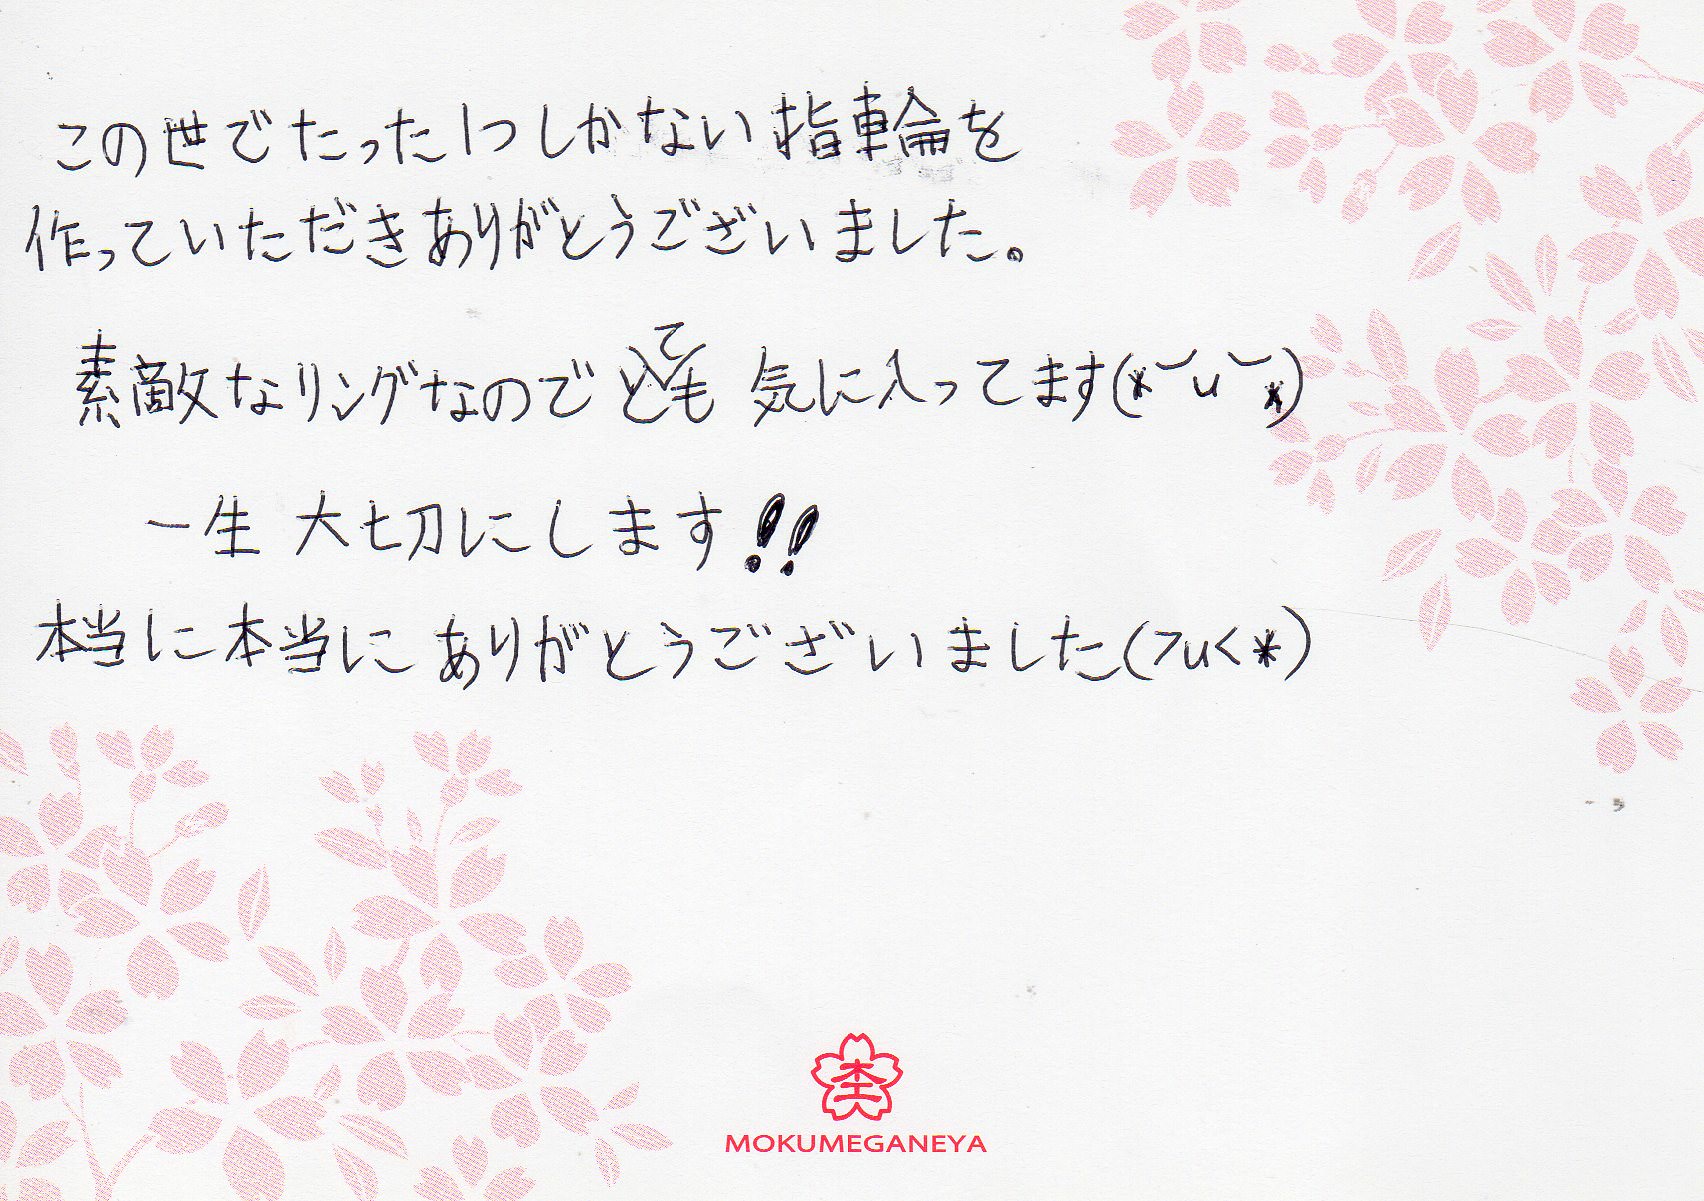 この世でたった1つしかない指輪を
作っていただきありがとうございました。
素敵なリングなのでとても気に入ってます(*˘u˘*)
一生大切にします!!
本当に本当にありがとうございました(>u<*)
杢
MOKUMEGANEYA